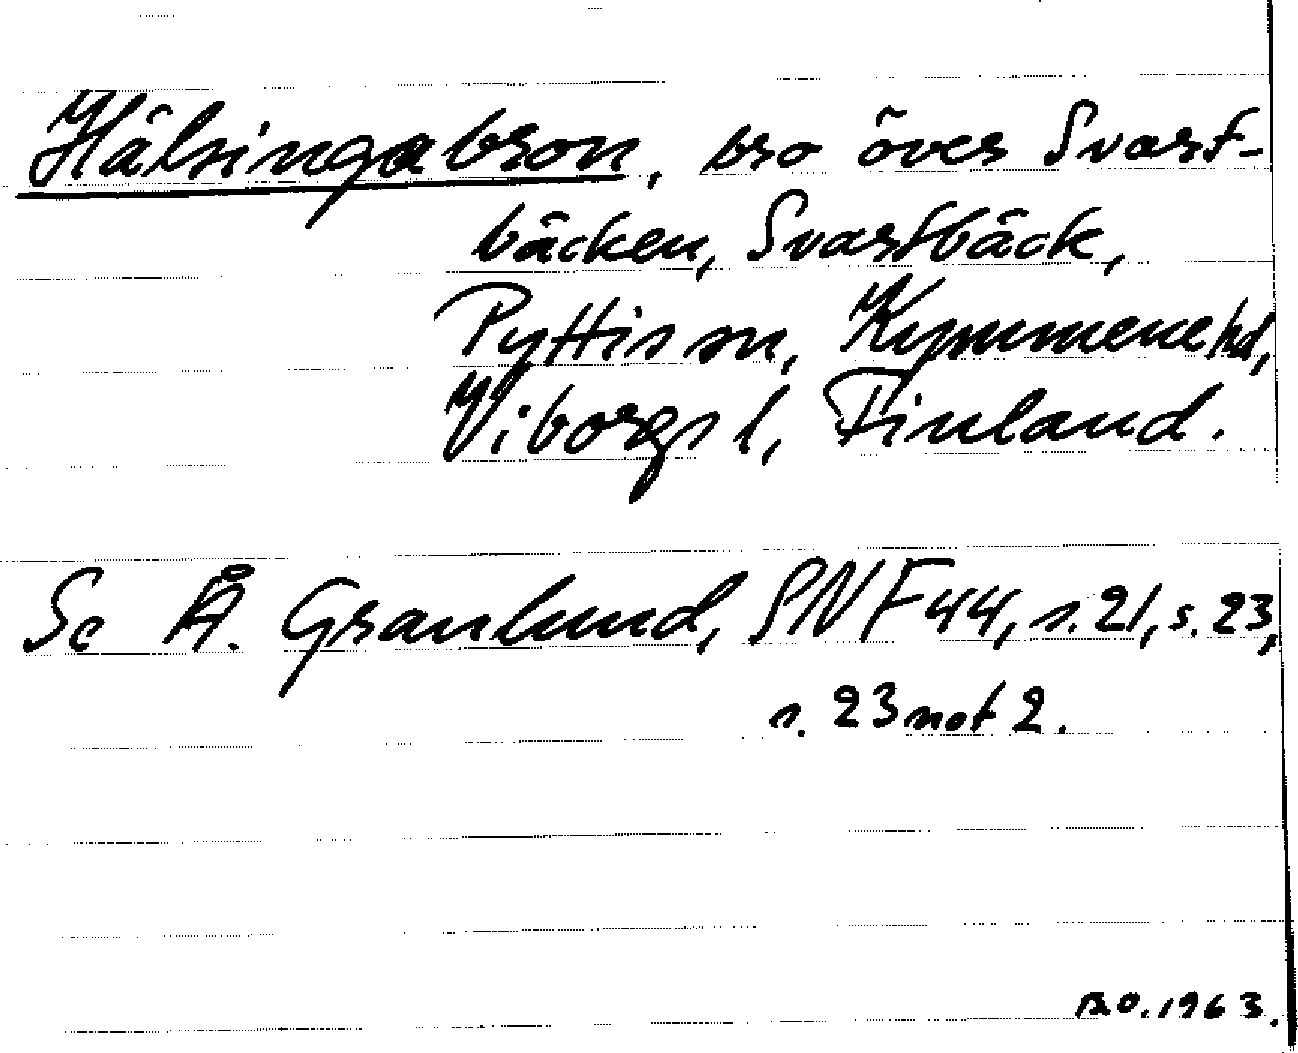 Hälsingabron, bro över Svart-
bäcken, Svartbäck,
Pyttis sn, Kymmene hd,
Viborgs l, Finland.
Se Å. Granlund, SNF 44, s. 21, s. 23,
s. 23 not 2.
B.O. 1963.